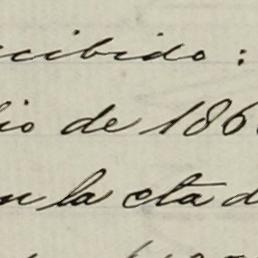 ecibido:
lio de 186
n la cta d